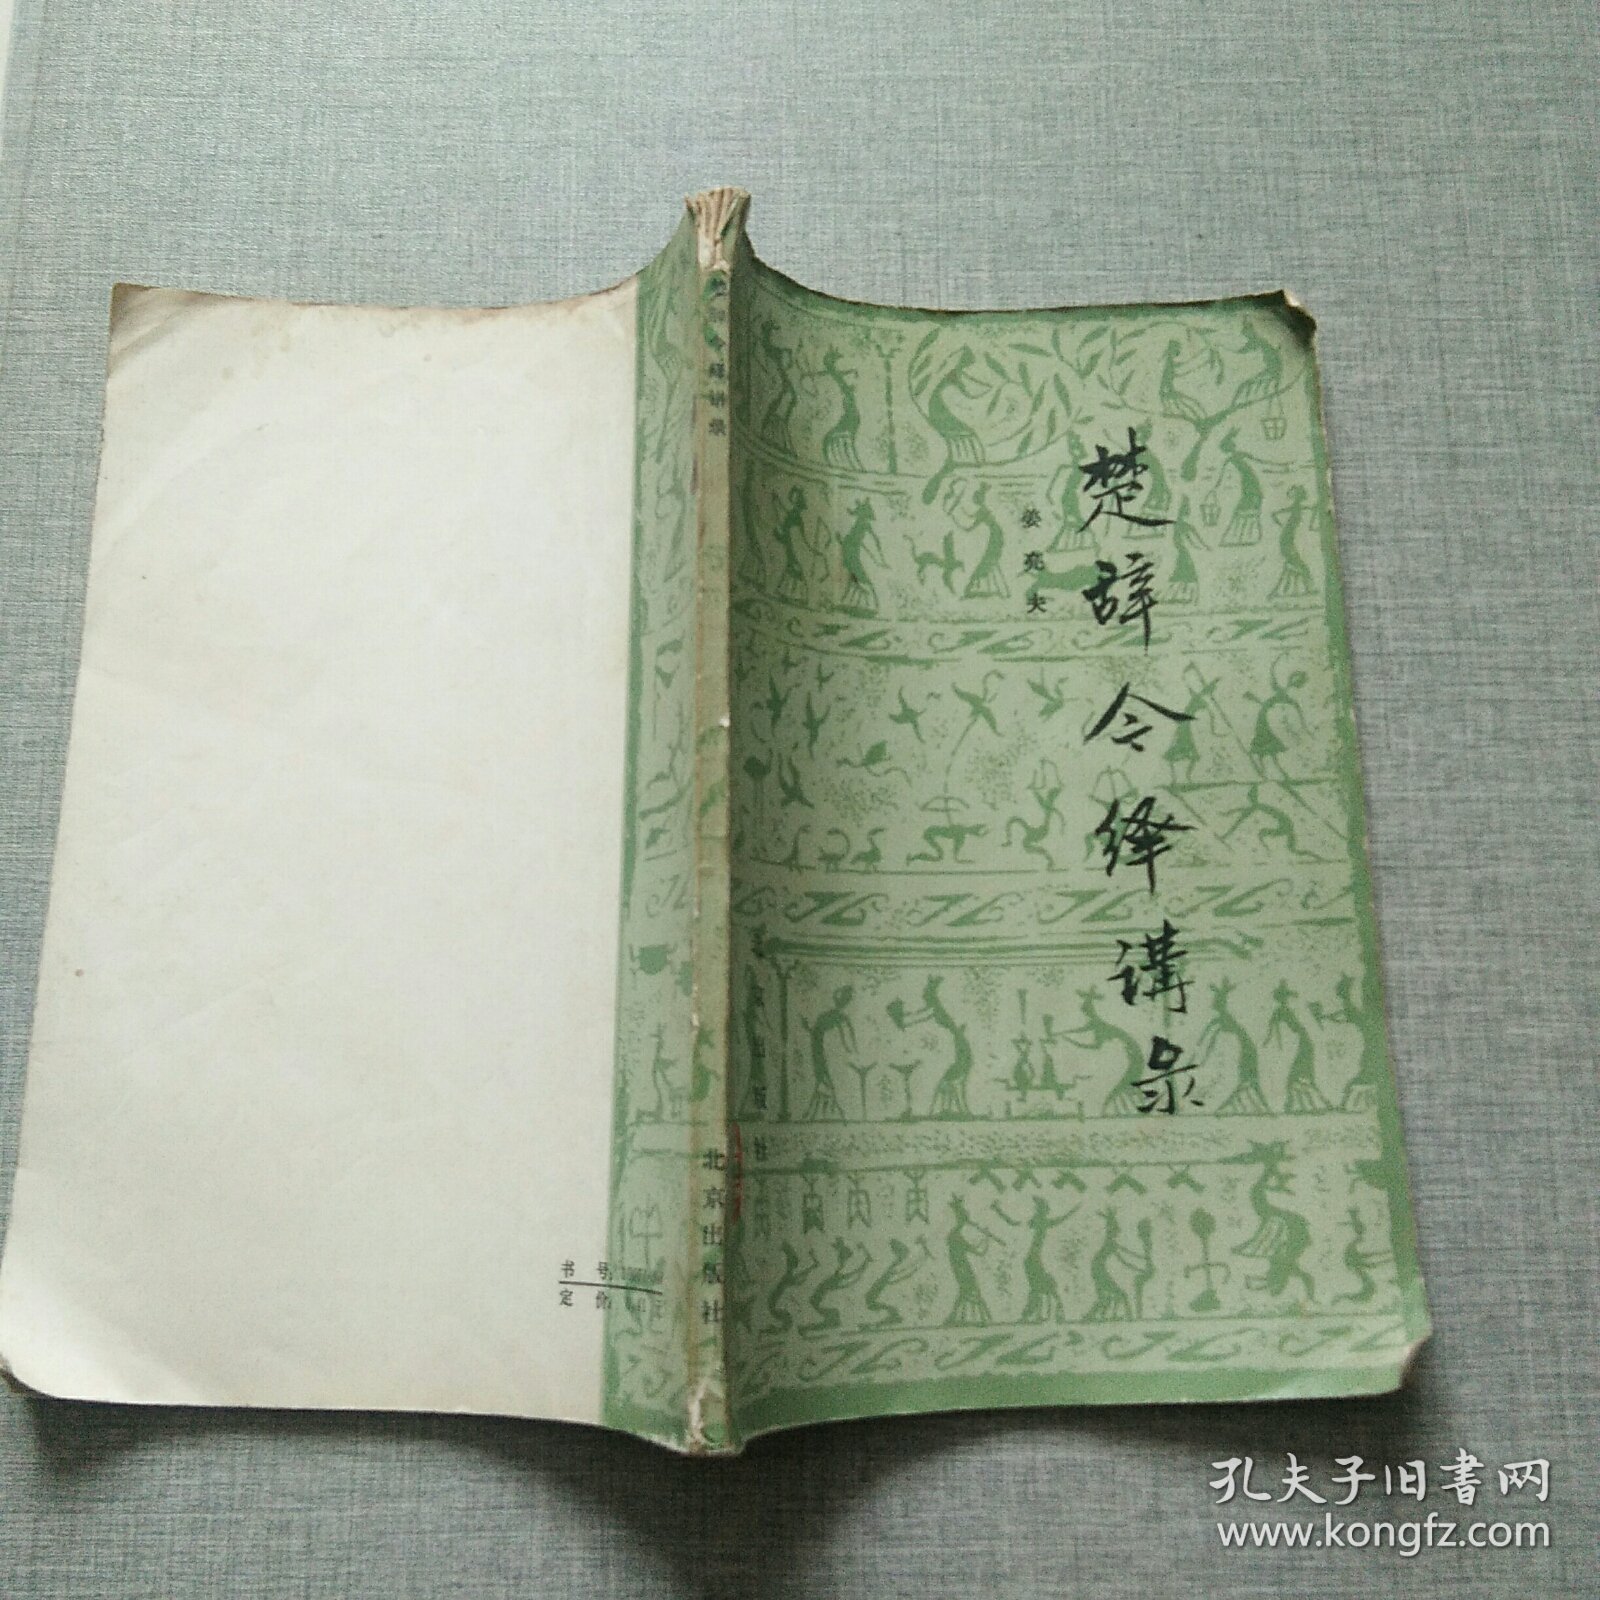 楚辞今绎講录
姜亮夫
北京出版社
楚辞今绎讲录
北京出版社
书号
定价
孔夫子旧書网
www.kongfz.com